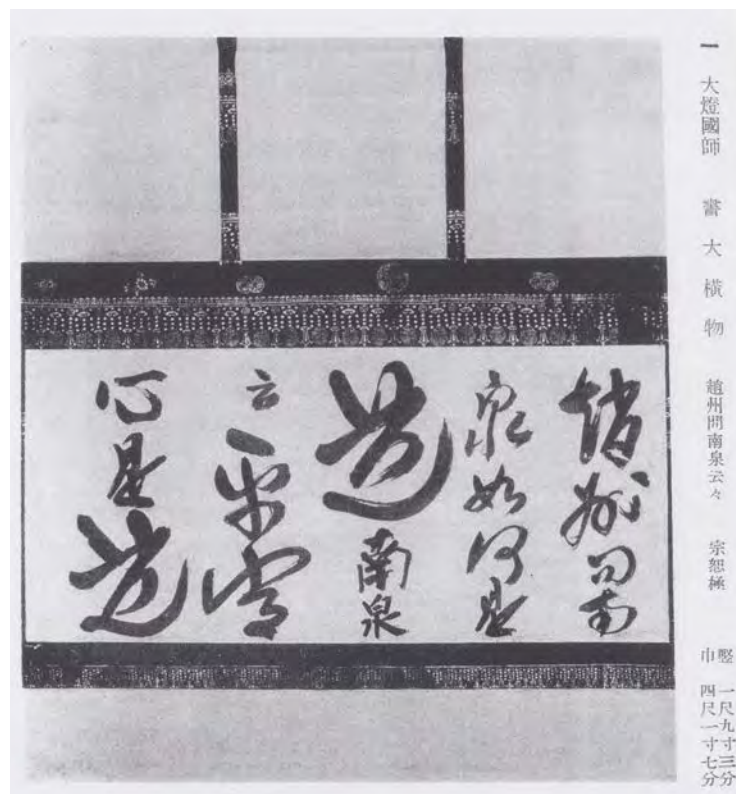 一 大燈國師 書大橫物 趙州問南泉云々 宗恕極
竪 一尺九寸三分
巾 四尺一寸七分
趙州問南
泉如何是
道南泉
云平常
心是道